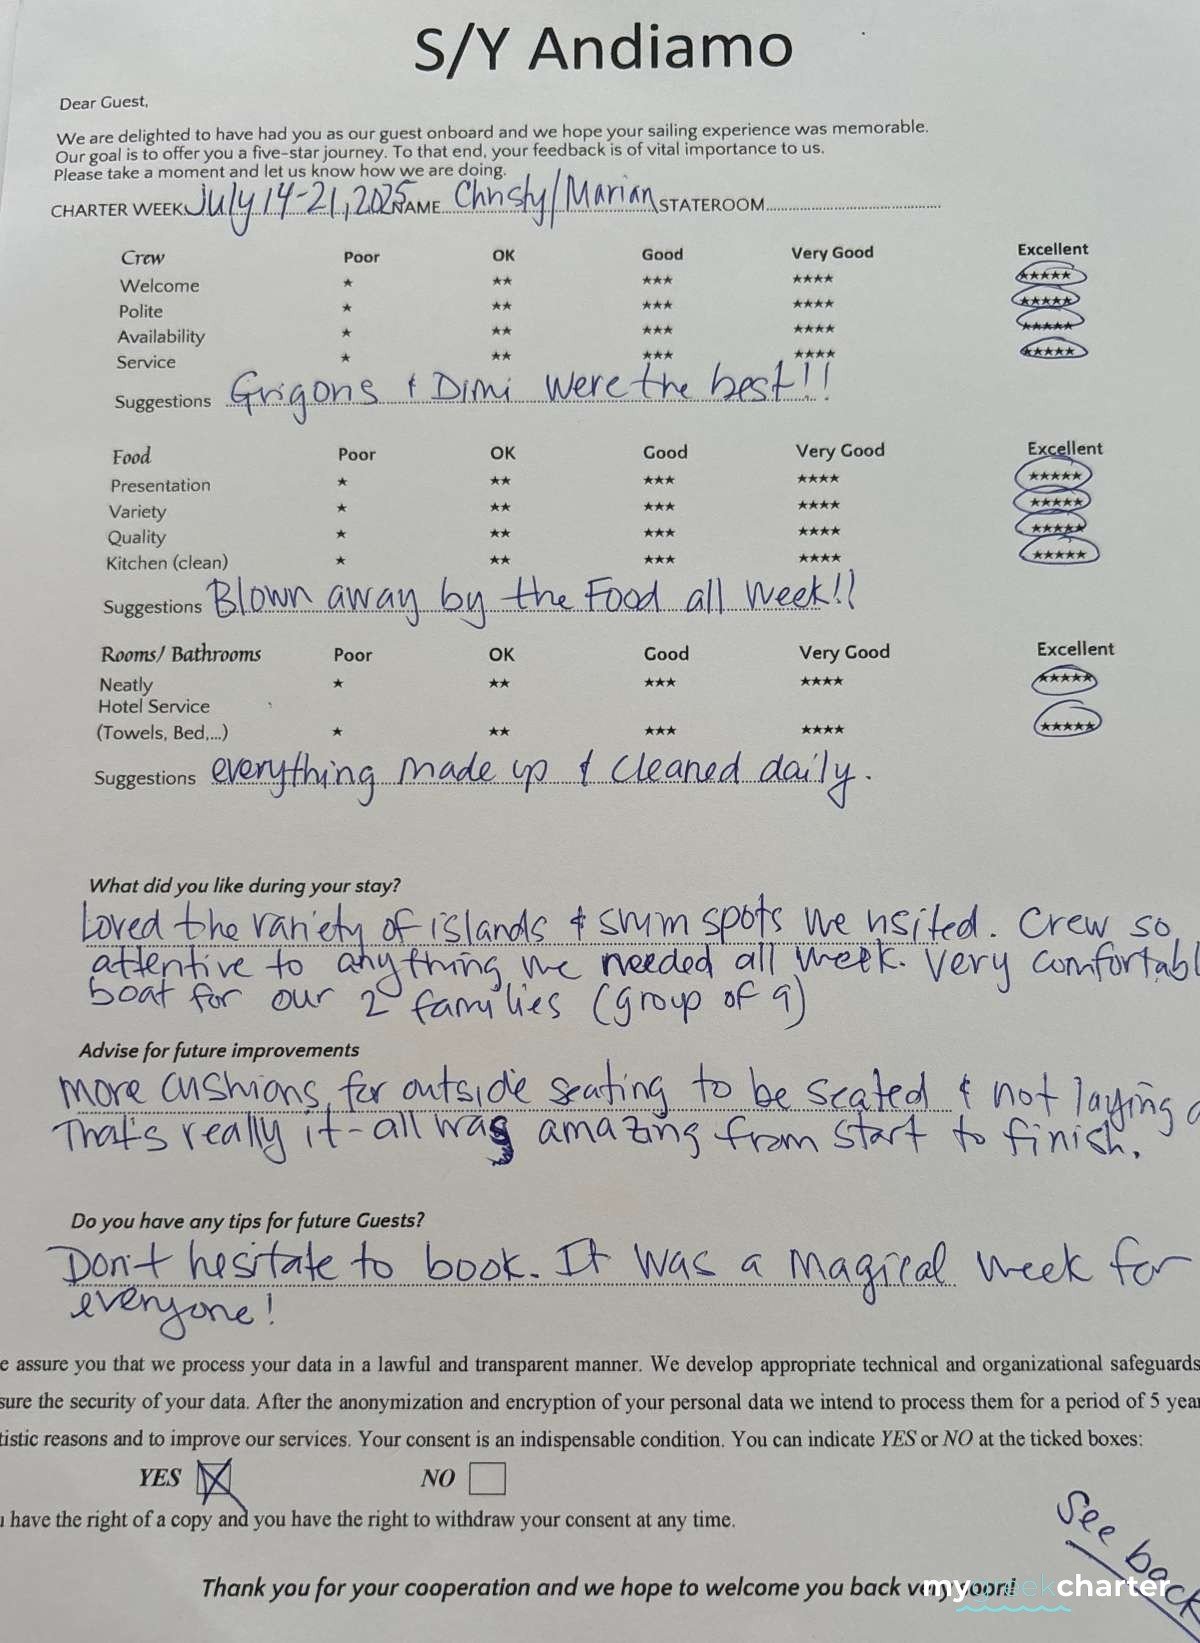 S/Y Andiamo
Dear Guest,
We are delighted to have had you as our guest onboard and we hope your sailing experience was memorable.
Our goal is to offer you a five-star journey. To that end, your feedback is of vital importance to us.
Please take a moment and let us know how we are doing.
CHARTER WEEK July 14-21, 2025 NAME Christy/Marian STATEROOM
Crew Poor OK Good Very Good Excellent
Welcome ★ ★★ ★★★ ★★★★ ★★★★★
Polite ★ ★★ ★★★ ★★★★ ★★★★★
Availability ★ ★★ ★★★ ★★★★ ★★★★★
Service ★ ★★ ★★★ ★★★★ ★★★★★
Suggestions Grigoris & Dimi were the best!!
Food Poor OK Good Very Good Excellent
Presentation ★ ★★ ★★★ ★★★★ ★★★★★
Variety ★ ★★ ★★★ ★★★★ ★★★★★
Quality ★ ★★ ★★★ ★★★★ ★★★★★
Kitchen (clean) ★ ★★ ★★★ ★★★★ ★★★★★
Suggestions Blown away by the Food all week!!
Rooms/ Bathrooms Poor OK Good Very Good Excellent
Neatly ★ ★★ ★★★ ★★★★ ★★★★★
Hotel Service
(Towels, Bed,...) ★ ★★ ★★★ ★★★★ ★★★★★
Suggestions everything made up & cleaned daily.
What did you like during your stay?
Loved the variety of islands & swim spots we visited. Crew so
attentive to anything we needed all week. Very comfortabl
boat for our 2 families (group of 9)
Advise for future improvements
More cushions for outside seating to be seated & not laying
That's really it - all was amazing from start to finish.
Do you have any tips for future Guests?
Don't hesitate to book. It was a magical week for
everyone!
e assure you that we process your data in a lawful and transparent manner. We develop appropriate technical and organizational safeguards
sure the security of your data. After the anonymization and encryption of your personal data we intend to process them for a period of 5 year
tistic reasons and to improve our services. Your consent is an indispensable condition. You can indicate YES or NO at the ticked boxes:
YES NO
u have the right of a copy and you have the right to withdraw your consent at any time.
See back
Thank you for your cooperation and we hope to welcome you back very soon!
mygreekcharter